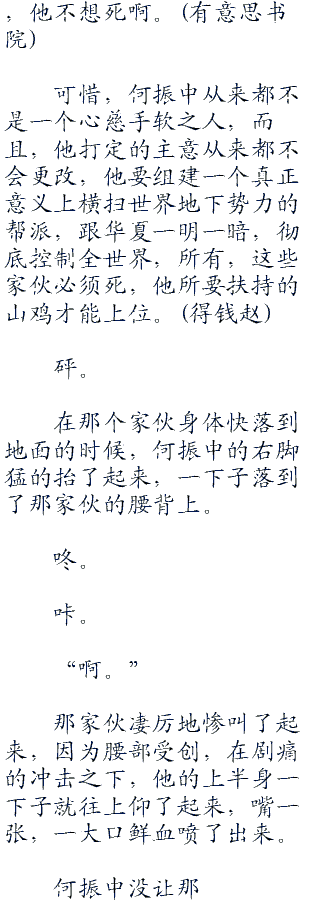 ，他不想死啊。(有意思书
院)
可惜，何振中从来都不
是一个心慈手软之人，而
且，他打定的主意从来都不
会更改，他要组建一个真正
意义上横扫世界地下势力的
帮派，跟华夏一明一暗，彻
底控制全世界，所有，这些
家伙必须死，他所要扶持的
山鸡才能上位。(得钱赵)
砰。
在那个家伙身体快落到
地面的时候，何振中的右脚
猛的抬了起来，一下子落到
了那家伙的腰背上。
咚。
咔。
“啊。”
那家伙凄厉地惨叫了起
来，因为腰部受创，在剧痛
的冲击之下，他的上半身一
下子就往上仰了起来，嘴一
张，一大口鲜血喷了出来。
何振中没让那